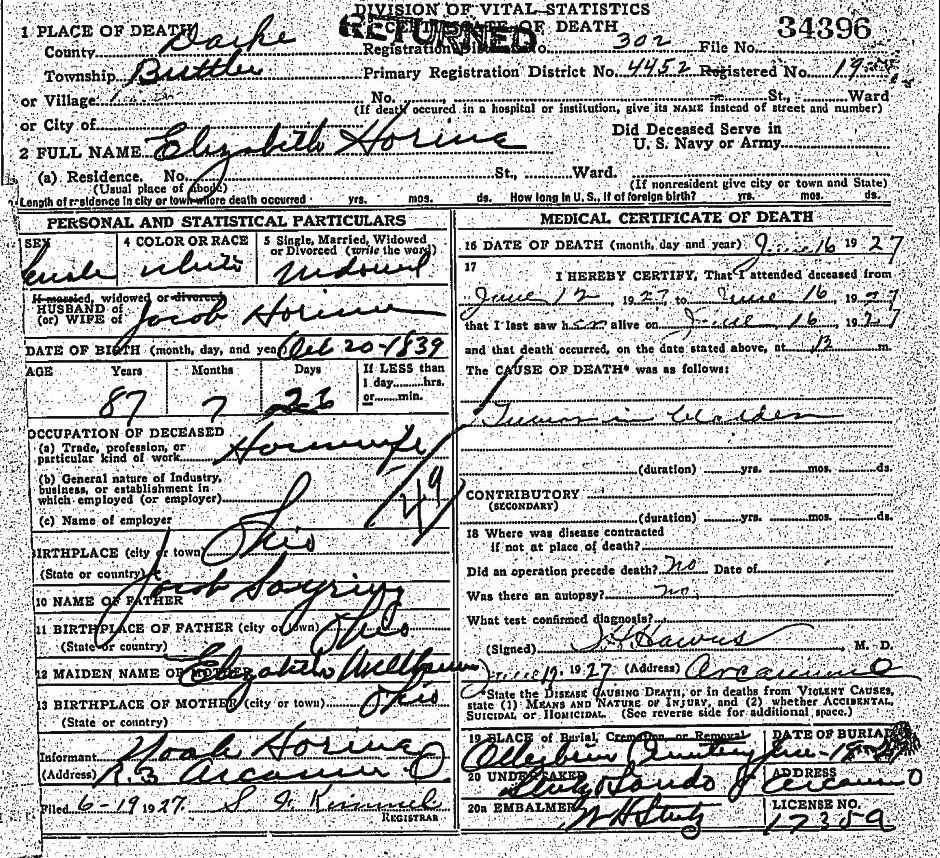 DIVISION OF VITAL STATISTICS
CERTIFICATE OF DEATH
RETURNED
34396
1 PLACE OF DEATH
County Darke Registration District No. 302 File No.
Township Buttler Primary Registration District No. 4452 Registered No. 19
or Village No. St., Ward
(If death occured in a hospital or institution, give its NAME instead of street and number)
or City of
Did Deceased Serve in
U. S. Navy or Army
2 FULL NAME Elizabeth Horine
(a) Residence. No. St., Ward.
(Usual place of abode) (If nonresident give city or town and State)
Length of residence in city or town where death occurred yrs. mos. ds. How long in U. S., if of foreign birth? yrs. mos. ds.
PERSONAL AND STATISTICAL PARTICULARS
SEX 4 COLOR OR RACE 5 Single, Married, Widowed
or Divorced (write the word)
Female White Widowed
If married, widowed or divorced
HUSBAND of
(or) WIFE of Jacob Horine
DATE OF BIRTH (month, day, and year) Oct 20-1839
AGE Years Months Days If LESS than
1 day hrs.
or min.
87 7 26
OCCUPATION OF DECEASED
(a) Trade, profession, or
particular kind of work Housewife
(b) General nature of Industry,
business, or establishment in
which employed (or employer)
(c) Name of employer
BIRTHPLACE (city or town) Ohio
(State or country)
10 NAME OF FATHER Jacob
11 BIRTHPLACE OF FATHER (city or town) Ohio
(State or country)
12 MAIDEN NAME OF MOTHER Elizabeth
13 BIRTHPLACE OF MOTHER (city or town) Ohio
(State or country)
Informant Noah Horine
(Address) R.3 Arcanum O
Filed 6-19 1927. S. Kimmel
REGISTRAR
MEDICAL CERTIFICATE OF DEATH
16 DATE OF DEATH (month, day and year) June 16 1927
17
I HEREBY CERTIFY, That I attended deceased from
June 12, 1927 to June 16, 1927
that I last saw her alive on June 16, 1927
and that death occurred, on the date stated above, at 12 m.
The CAUSE OF DEATH* was as follows:
Tumor in bladder
(duration) yrs. mos. ds.
CONTRIBUTORY
(SECONDARY)
(duration) yrs. mos. ds.
18 Where was disease contracted
if not at place of death?
Did an operation precede death? No Date of
Was there an autopsy? no
What test confirmed diagnosis?
(Signed) Hawes M. D.
June 17, 1927 (Address) Arcanum O
State the DISEASE CAUSING DEATH, or in deaths from VIOLENT CAUSES,
state (1) MEANS AND NATURE OF INJURY, and (2) whether ACCIDENTAL,
SUICIDAL OR HOMICIDAL. (See reverse side for additional space.)
19 PLACE of Burial, Cremation, or Removal DATE OF BURIAL
Otterbein Cemetery June-18
20 UNDERTAKER ADDRESS
Stutz Arcanum O
20a EMBALMER LICENSE NO.
W H Stutz 1735a